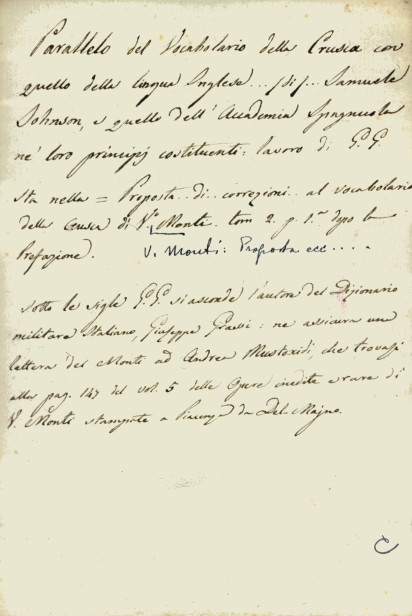 Parallelo del Vocabolario della Crusca con
quello della lingua Inglese... di... Samuele
Johnson, e quello dell'Accademia Spagnuola
ne' loro principj costituenti: lavoro di G. G.
sta nella = Proposta.. di.. correzioni.. al vocabolario
della Crusca di V. Monti. tom 2. p. 1.ª dopo la
Prefazione. V. Monti: Proposta ecc....
sotto le sigle G. G. si asconde l'autore del Dizionario
militare Italiano, Giuseppe Grassi: ne assicura una
lettera del Monti ad Andrea Mustoxidi, che trovasi
alla pag. 147 del vol. 5 delle Opere inedite e rare di
V. Monti stampate a Piacenza da Del-Majno.
C